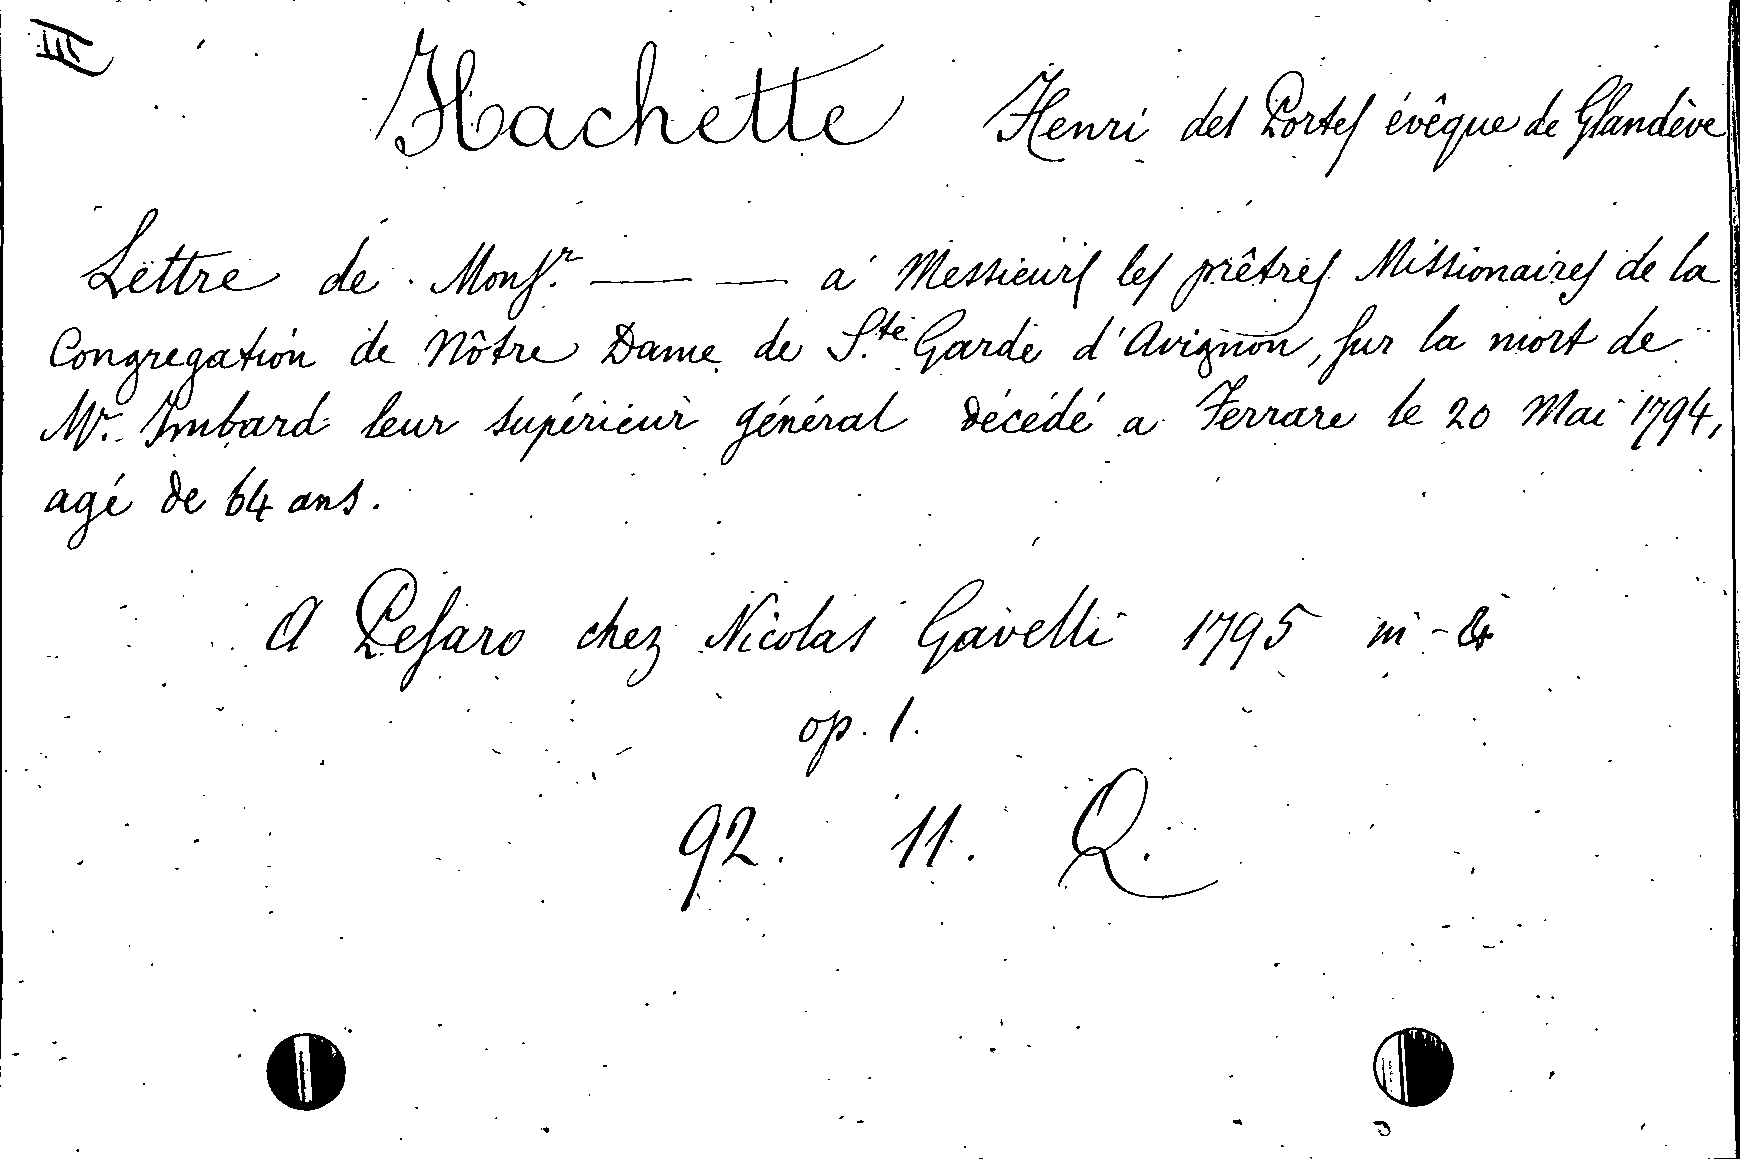 III
Hachette Henri des Portes évêque de Glandève
Lettre de Monsr. —— — a Messieurs les prêtres Missionaires de la
Congregation de Nôtre Dame de S.te Garde d'Avignon, sur la mort de
Mr. Imbard leur supérieur général décédé a Ferrare le 20 Mai 1794,
agé de 64 ans.
A Pesaro chez Nicolas Gavelli 1795 in-
op. 1.
92. 11. Q.